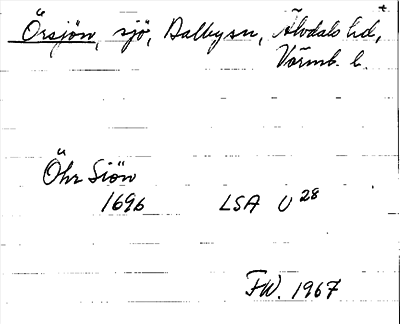 Örsjön, sjö, Dalby sn, Älvdals hd,
Värmb. l.
Öhr Siön
1696 LSA U 28
FW. 1967